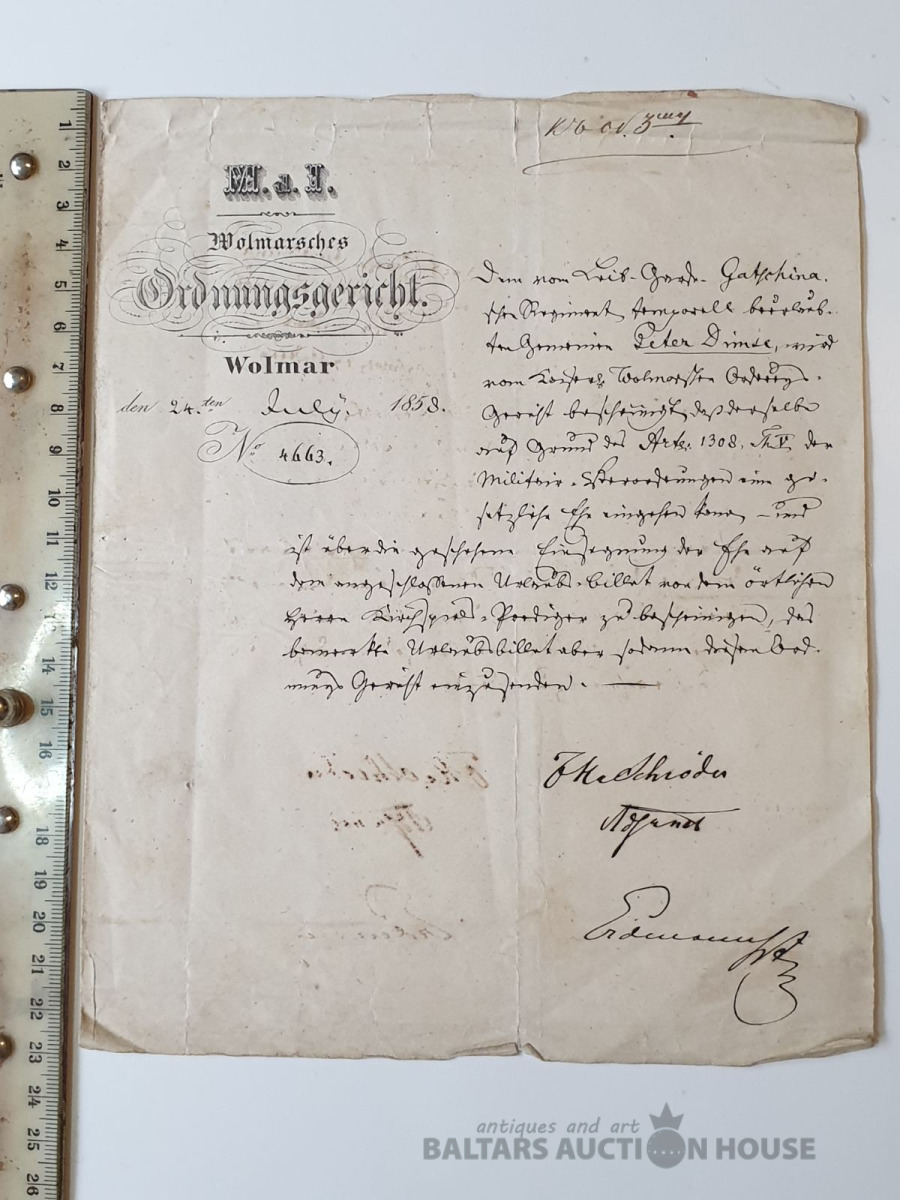 M. d. I.
Wolmarsches
Ordnungsgericht.
Wolmar
den 24.ten July. 1858.
No 4663.
Dem vom Leib-Garde- Gatschina.
schen Regiment, temporell beurlaub-
ten Gemeinen Peter Dimse, wird
vom Kaiserl. Wolmarschen Ordnungs-
Gericht bescheinigt, daß derselbe
auf Grund des Art. 1308. Th. V. der
Militair-Verordnungen eine ge-
setzliche Ehe eingehen kann, – und
ist über die geschehene Einsegnung der Ehe auf
dem angeschlossenen Urlaubs-billet von dem örtlichen
Herrn Kirchspiels-Prediger zu bescheinigen, das
bemerkte Urlaubsbillet aber sodann diesem Ord-
nungs Gericht einzusenden. —
Schröder
Adjunct
1
2
3
4
5
6
7
8
9
10
11
12
14
15
16
18
19
20
21
22
23
24
25
26
antiques and art
BALTARS AUCTION HOUSE